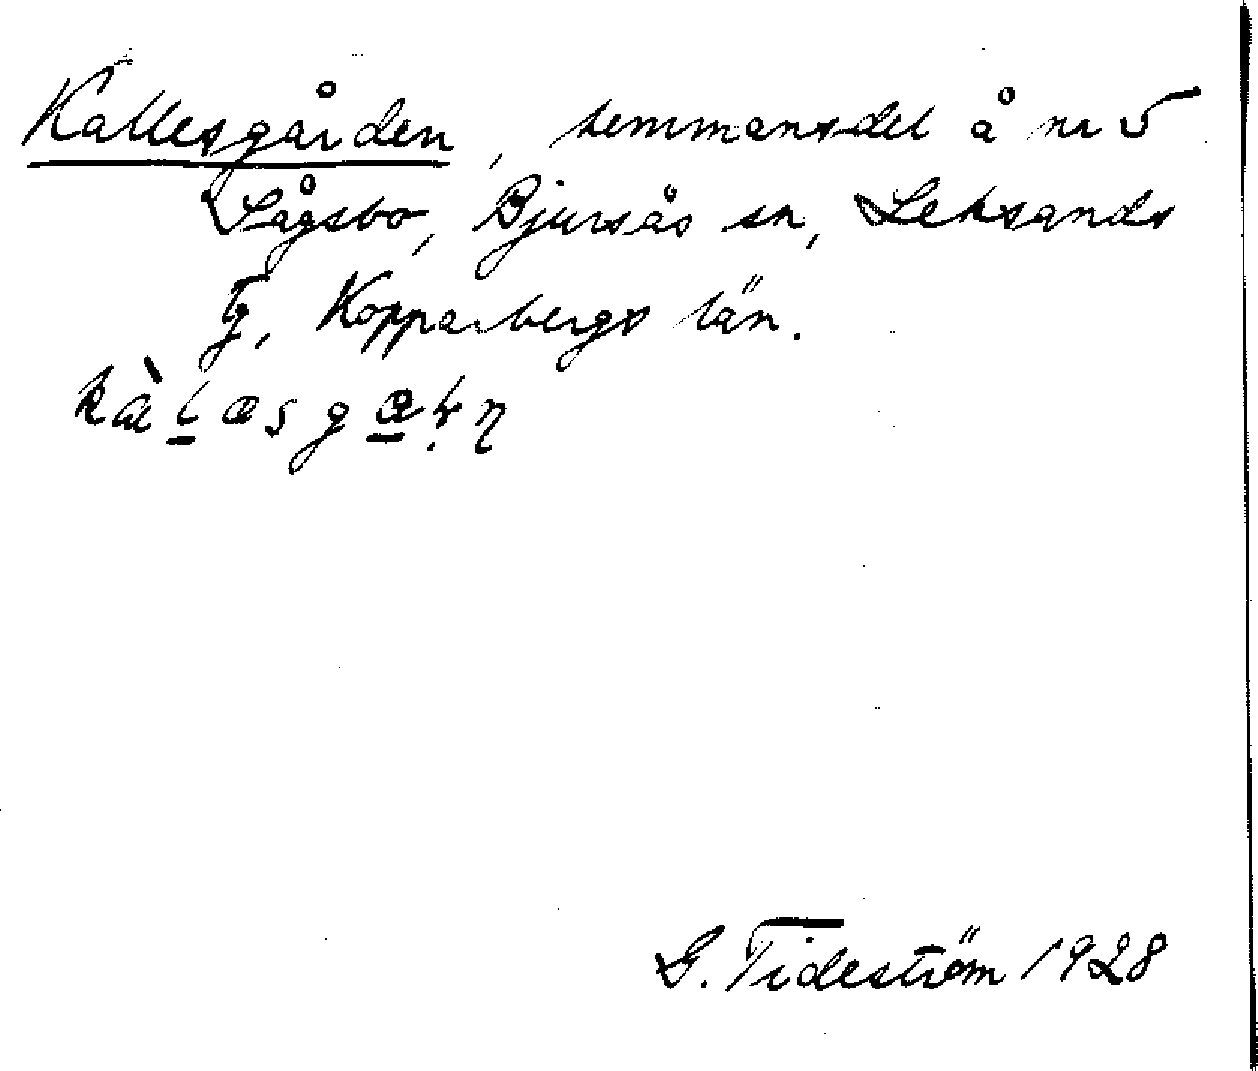 Kallesgården, hemmansdel å nr 5
Lågsbo, Bjursås sn, Leksands
tg, Kopparbergs län.
G. Tideström 1928